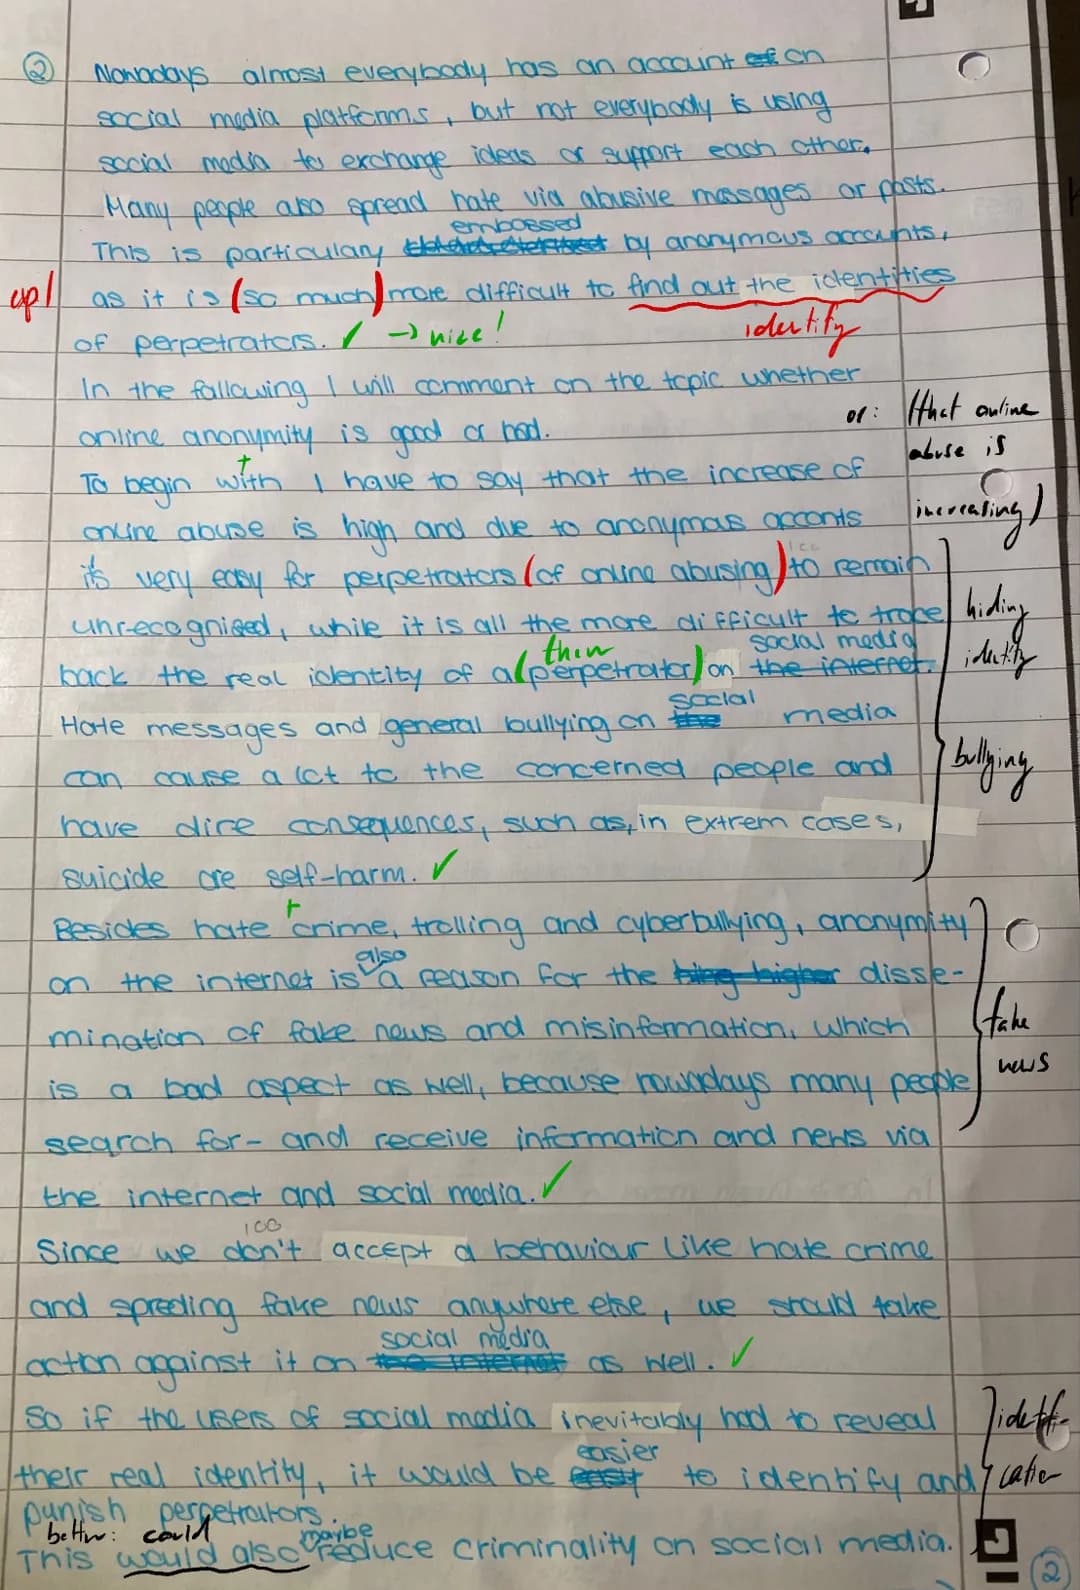 ② Nowadays almost everybody has an account on
social media platforms, but not everybody is using
social media to exchange ideas or support each other.
Many people also spread hate via abusive messages or posts.
embossed
This is particulary by anonymous accounts,
up! as it is (so much) more difficult to find out the identities
identify
of perpetrators. ✓ → nice!
In the following I will comment on the topic whether
online anonymity is good or bad.
or: (that online
abuse is
increasing)
To begin with I have to say that the increase of
online abuse is high and due to anonymous acconts
it's very easy for perpetrators (of online abusing) to remain
unrecognised, while it is all the more difficult to trace
hiding
identity
them social media
back the real identity of a (perpetrator) on the internet.
social
Hate messages and general bullying on the media
bullying
can cause a lot to the concerned people and
have dire consequences, such as, in extrem cases,
suicide ore self-harm. ✓
Besides hate crime, trolling and cyberbullying, anonymity
also
on the internet is a reason for the higher disse-
mination of fake news and misinformation, which
fake
news
is a bad aspect as well, because nowadays many people
search for- and receive information and news via
the internet and social media. ✓
Since we don't accept a behaviour like hate crime
and spreding fake news anywhere else, we should take
social media
action against it on the internet as well. ✓
So if the users of social media inevitably had to reveal
identifi-
cation
easier
their real identity, it would be easy to identify and
punish perpetrators.
better: could maybe
This would also reduce criminality on social media.
2